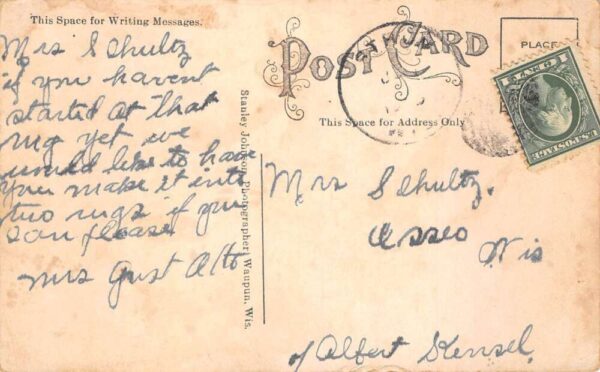 This Space for Writing Messages.
POST CARD
PLACE
This Space for Address Only
Mrs Schultz
if you havent
started at that
rug yet we
would like to have
you make it into
two rugs if you
can please
Mrs Gust Alto
Stanley Johnson, Photographer, Waupun, Wis.
Mrs Schultz.
Osseo
Wis
of Albert Kensel,
U.S.POSTAGE
1 CENT 1